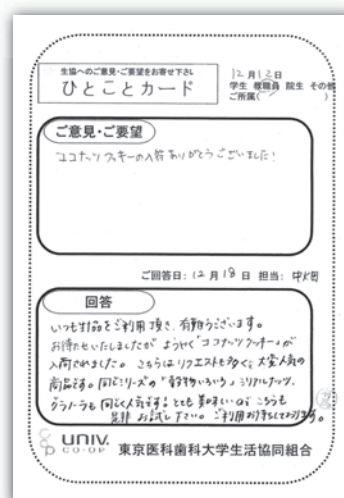 生協へのご意見・ご要望をお寄せ下さい
ひとことカード
12月12日
学生 教職員 院生 その他
ご所属( )
ご意見・ご要望
ココナッツクッキーの入荷ありがとうございました!
ご回答日:12月18日 担当:
回答
いつも生協をご利用頂き、有難うございます。
お待たせいたしましたが ようやく"ココナッツクッキー"が
入荷されました。こちらはリクエストも多く、大変人気の
商品です。同シリーズの"穀物いろいろ"シリアルナッツ、
グラノーラも同じく人気です。とても美味しいので こちらも
是非お試し下さい。ご利用お待ちしております。
UNIV.
CO-OP
東京医科歯科大学生活協同組合